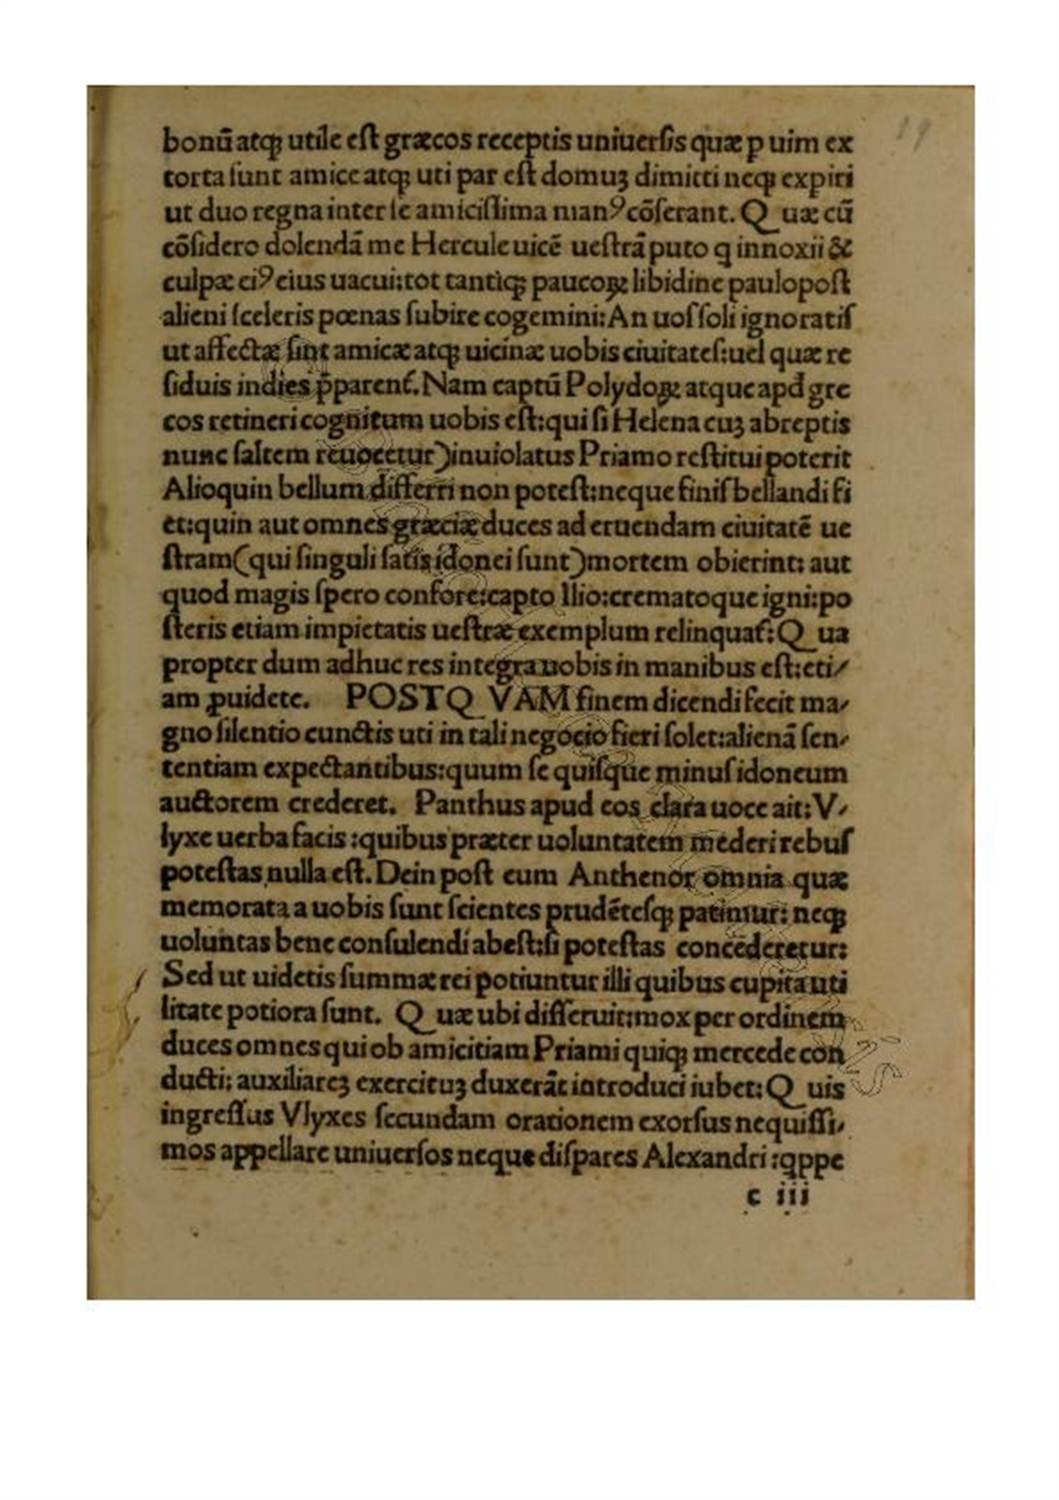 19
bonū atq; utile est græcos receptis uniuersis quæ p uim ex
torta sunt amice atq; uti par est domuꝫ dimitti neq; expiri
ut duo regna inter se amicissima manꝰ cōserant. Q uæ cū
cōsidero dolendā me Hercule uicē uestrā puto q innoxii &
culpæ ciꝰ eius uacui: tot tantiq; paucoꝝ libidine paulopost
alieni sceleris pœnas subire cogemini: An uos soli ignoratis
ut affectæ sint amicæ atq; uicinæ uobis ciuitates: uel quæ re
siduis indies p̄parent᷑. Nam captū Polydoꝝ atque apđ gre
cos retineri cognitum uobis est: qui si Helena cuꝫ abreptis
nunc saltem reuocetur) inuiolatus Priamo restitui poterit
Alioquin bellum differri non potest: neque finis bellandi fi
et: quin aut omnes græciæ duces ad eruendam ciuitatē ue
stram (qui singuli satis idonei sunt) mortem obierint: aut
quod magis spero confore: capto Ilio: crematoque igni: po
steris etiam impietatis uestræ exemplum relinquat᷑: Q ua
propter dum adhuc res integra uobis in manibus est: eti/
am ꝓuidete. POSTQ VAM finem dicendi fecit ma/
gno silentio cunctis uti in tali negocio fieri solet: alienā sen/
tentiam expectantibus: quum se quisque minus idoneum
auctorem crederet. Panthus apud eos clara uoce ait: V/
lyxe uerba facis: quibus præter uoluntatem mederi rebus
potestas nulla est. Dein post eum Anthenor omnia quæ
memorata a uobis sunt scientes prudētesq; patimur: neq;
uoluntas bene consulendi abest: si potestas concederetur:
Sed ut uidetis summæ rei potiuntur illi quibus cupita uti
litate potiora sunt. Q uæ ubi disseruit: mox per ordinem
duces omnes qui ob amicitiam Priami quiq; mercede con
ducti: auxiliareꝫ exercituꝫ duxerāt introduci iubet: Q uis
ingressus Vlyxes secundam orationem exorsus nequissi/
mos appellare uniuersos neque dispares Alexandri: qppe
c iii